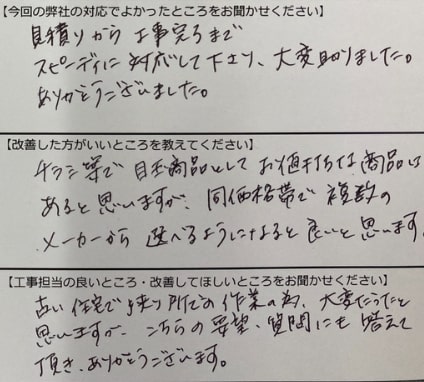 【今回の弊社の対応でよかったところをお聞かせください】
見積りから工事完了まで
スピーディに対応して下さり、大変助かりました。
ありがとうございました。
【改善した方がいいところを教えてください】
チラシ等で目玉商品としてお値打ちな商品は
あると思いますが、同価格帯で複数の
メーカーから選べるようになると良いと思います。
【工事担当の良いところ・改善してほしいところをお聞かせください】
古い住宅で狭い所での作業の為、大変だったと
思いますが、こちらの要望、質問にも答えて
頂き、ありがとうございます。